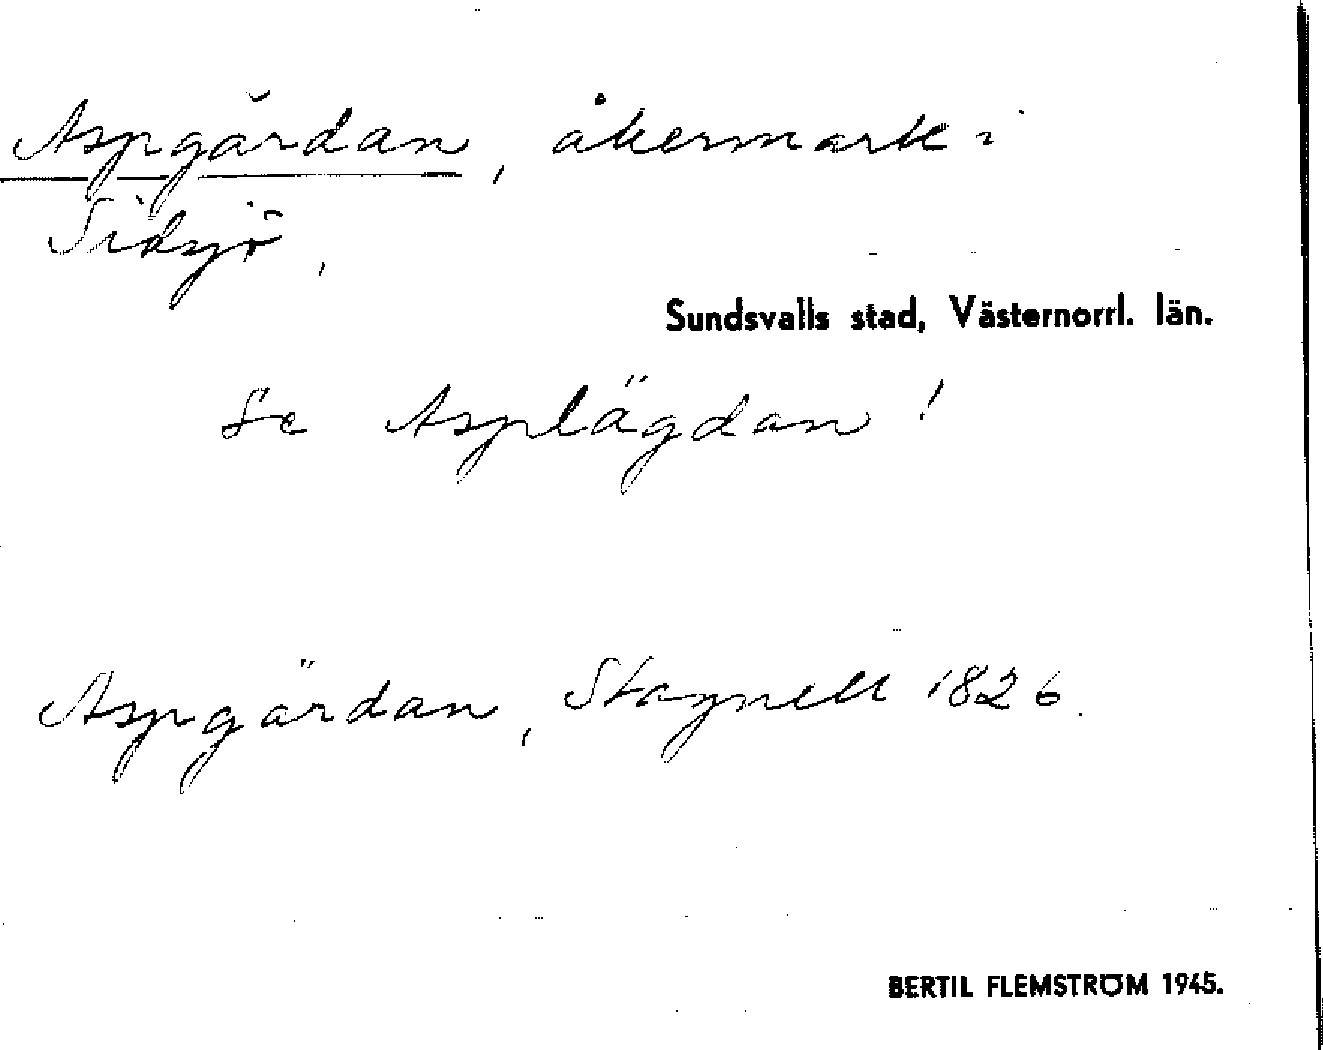 Aspgärdan, åkermark i
Sidsjö,
Sundsvalls stad, Västernorrl. län.
Se Asplägdan!
Aspgärdan, Stagnell 1826.
BERTIL FLEMSTRÖM 1945.